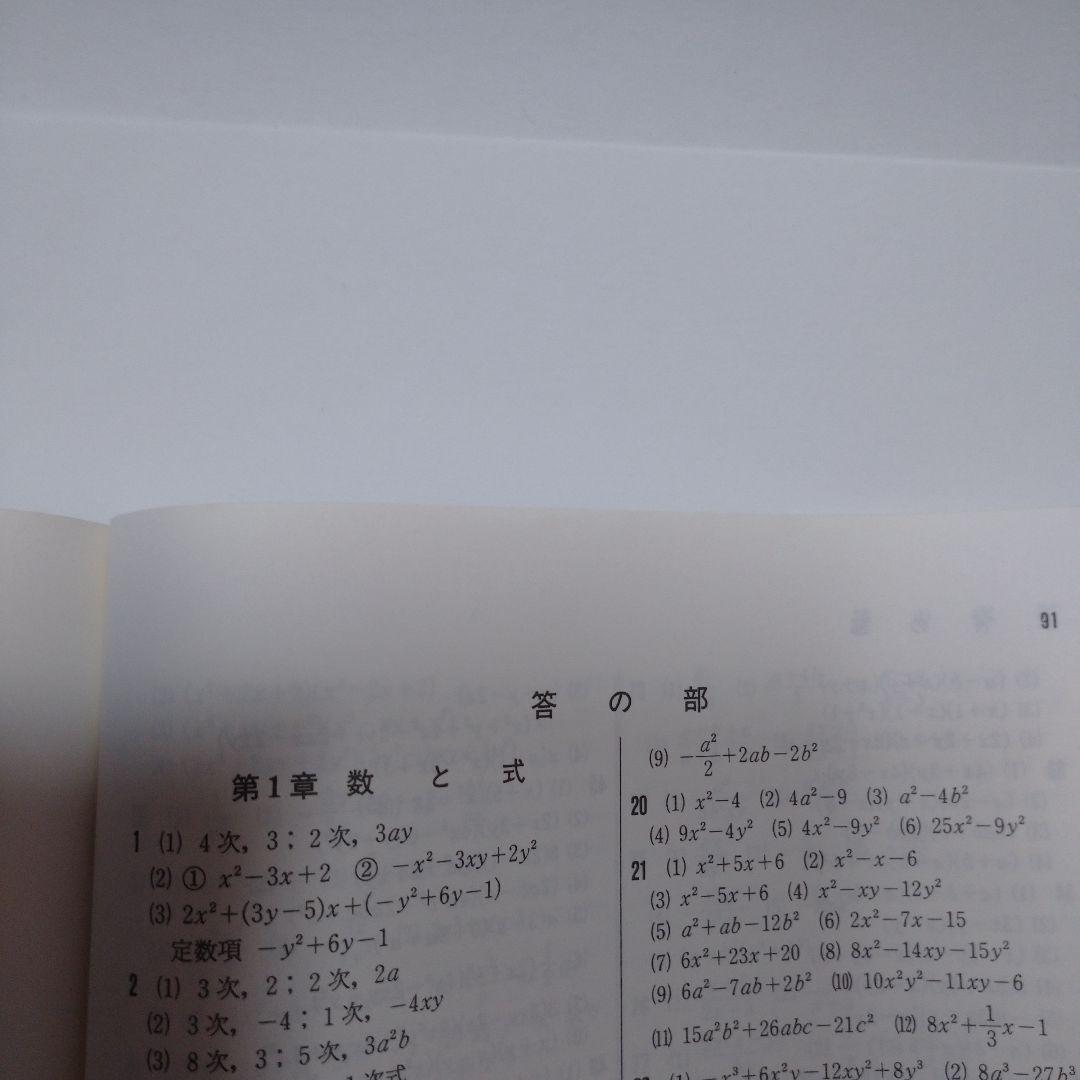 91
答の部
第1章 数と式
1 (1) 4次, 3; 2次, 3ay
(2) ① x²−3x+2 ② −x²−3xy+2y²
(3) 2x²+(3y−5)x+(−y²+6y−1)
定数項 −y²+6y−1
2 (1) 3次, 2; 2次, 2a
(2) 3次, −4; 1次, −4xy
(3) 8次, 3; 5次, 3a²b
1次式
(9) −a²/2+2ab−2b²
20 (1) x²−4 (2) 4a²−9 (3) a²−4b²
(4) 9x²−4y² (5) 4x²−9y² (6) 25x²−9y²
21 (1) x²+5x+6 (2) x²−x−6
(3) x²−5x+6 (4) x²−xy−12y²
(5) a²+ab−12b² (6) 2x²−7x−15
(7) 6x²+23x+20 (8) 8x²−14xy−15y²
(9) 6a²−7ab+2b² (10) 10x²y²−11xy−6
(11) 15a²b²+26abc−21c² (12) 8x²+1/3x−1
(1) −x³+6x²y−12xy²+8y³ (2) 8a³−27b³